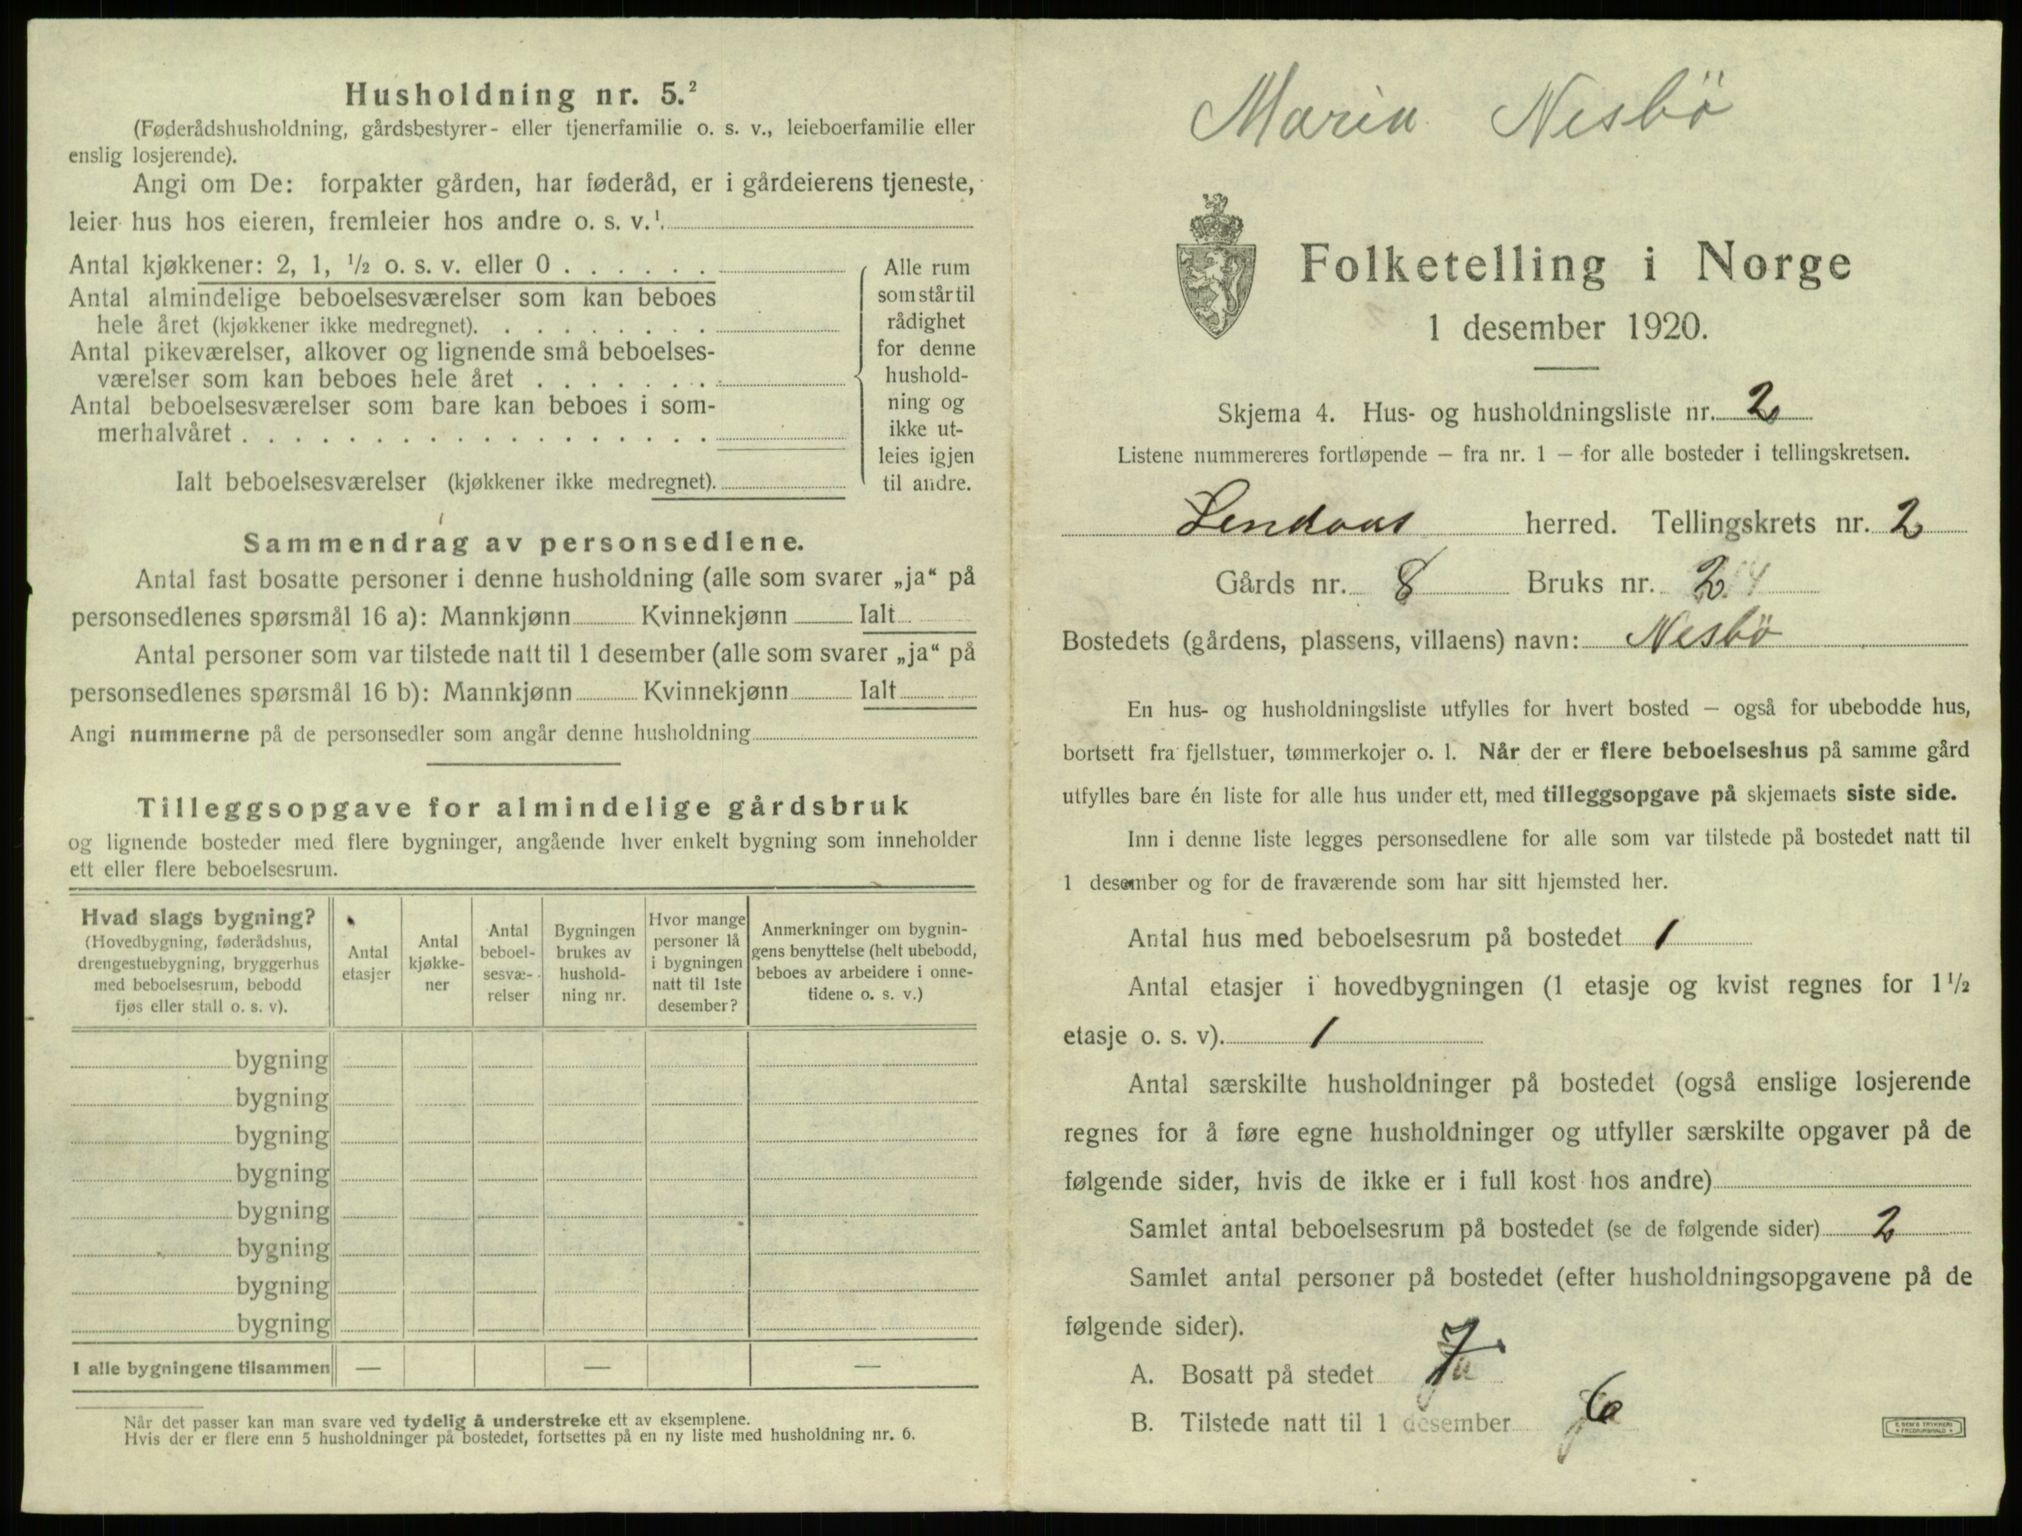 Husholdning nr. 5.²
(Føderådshusholdning, gårdsbestyrer- eller tjenerfamilie o. s. v., leieboerfamilie eller
enslig losjerende).
Angi om De: forpakter gården, har føderåd, er i gårdeierens tjeneste,
leier hus hos eieren, fremleier hos andre o. s. v.¹
Antal kjøkkener: 2, 1, ½ o. s. v. eller 0
Antal almindelige beboelsesværelser som kan beboes
hele året (kjøkkener ikke medregnet).
Antal pikeværelser, alkover og lignende små beboelses-
værelser som kan beboes hele året
Antal beboelsesværelser som bare kan beboes i som-
merhalvåret
Ialt beboelsesværelser (kjøkkener ikke medregnet).
Alle rum
som står til
rådighet
for denne
hushold-
ning og
ikke ut-
leies igjen
til andre.
Sammendrag av personsedlene.
Antal fast bosatte personer i denne husholdning (alle som svarer „ja“ på
personsedlenes spørsmål 16 a): Mannkjønn Kvinnekjønn Ialt
Antal personer som var tilstede natt til 1 desember (alle som svarer „ja“ på
personsedlenes spørsmål 16 b): Mannkjønn Kvinnekjønn Ialt
Angi nummerne på de personsedler som angår denne husholdning
Tilleggsopgave for almindelige gårdsbruk
og lignende bosteder med flere bygninger, angående hver enkelt bygning som inneholder
ett eller flere beboelsesrum.
Hvad slags bygning?
(Hovedbygning, føderådshus,
drengestuebygning, bryggerhus
med beboelsesrum, bebodd
fjøs eller stall o. s. v).
Antal
etasjer
Antal
kjøkke-
ner
Antal
beboel-
sesvæ-
relser
Bygningen
brukes av
hushold-
ning nr.
Hvor mange
personer lå
i bygningen
natt til 1ste
desember?
Anmerkninger om bygnin-
gens benyttelse (helt ubebodd,
beboes av arbeidere i onne-
tidene o. s. v.)
bygning
bygning
bygning
bygning
bygning
bygning
bygning
bygning
I alle bygningene tilsammen — — —
Når det passer kan man svare ved tydelig å understreke ett av eksemplene.
Hvis der er flere enn 5 husholdninger på bostedet, fortsettes på en ny liste med husholdning nr. 6.
Maria Nesbö
Folketelling i Norge
1 desember 1920.
Skjema 4. Hus- og husholdningsliste nr. 2
Listene nummereres fortløpende — fra nr. 1 — for alle bosteder i tellingskretsen.
Lindaas herred. Tellingskrets nr. 2
Gårds nr. 8 Bruks nr. 24
Bostedets (gårdens, plassens, villaens) navn: Nesbö
En hus- og husholdningsliste utfylles for hvert bosted — også for ubebodde hus,
bortsett fra fjellstuer, tømmerkojer o. l. Når der er flere beboelseshus på samme gård
utfylles bare én liste for alle hus under ett, med tilleggsopgave på skjemaets siste side.
Inn i denne liste legges personsedlene for alle som var tilstede på bostedet natt til
1 desember og for de fraværende som har sitt hjemsted her.
Antal hus med beboelsesrum på bostedet 1
Antal etasjer i hovedbygningen (1 etasje og kvist regnes for 1½
etasje o. s. v). 1
Antal særskilte husholdninger på bostedet (også enslige losjerende
regnes for å føre egne husholdninger og utfyller særskilte opgaver på de
følgende sider, hvis de ikke er i full kost hos andre)
Samlet antal beboelsesrum på bostedet (se de følgende sider) 2
Samlet antal personer på bostedet (efter husholdningsopgavene på de
følgende sider).
A. Bosatt på stedet 7
B. Tilstede natt til 1 desember 6